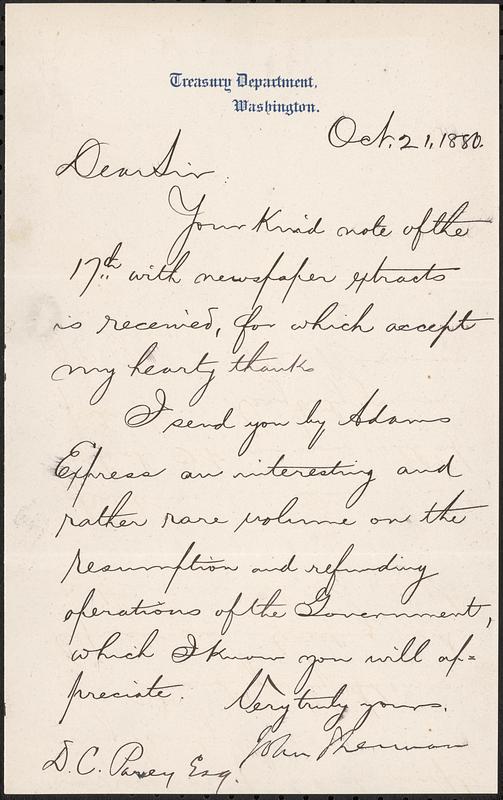 Treasury Department,
Washington.
Oct. 21, 1880.
Dear Sir
Your kind note of the
17th with newspaper extracts
is received, for which accept
my hearty thanks
I send you by Adams
Express an interesting and
rather rare volume on the
resumption and refunding
operations of the Government,
which I know you will ap=
preciate.
Very truly yours,
John Sherman
D. C. Esq.